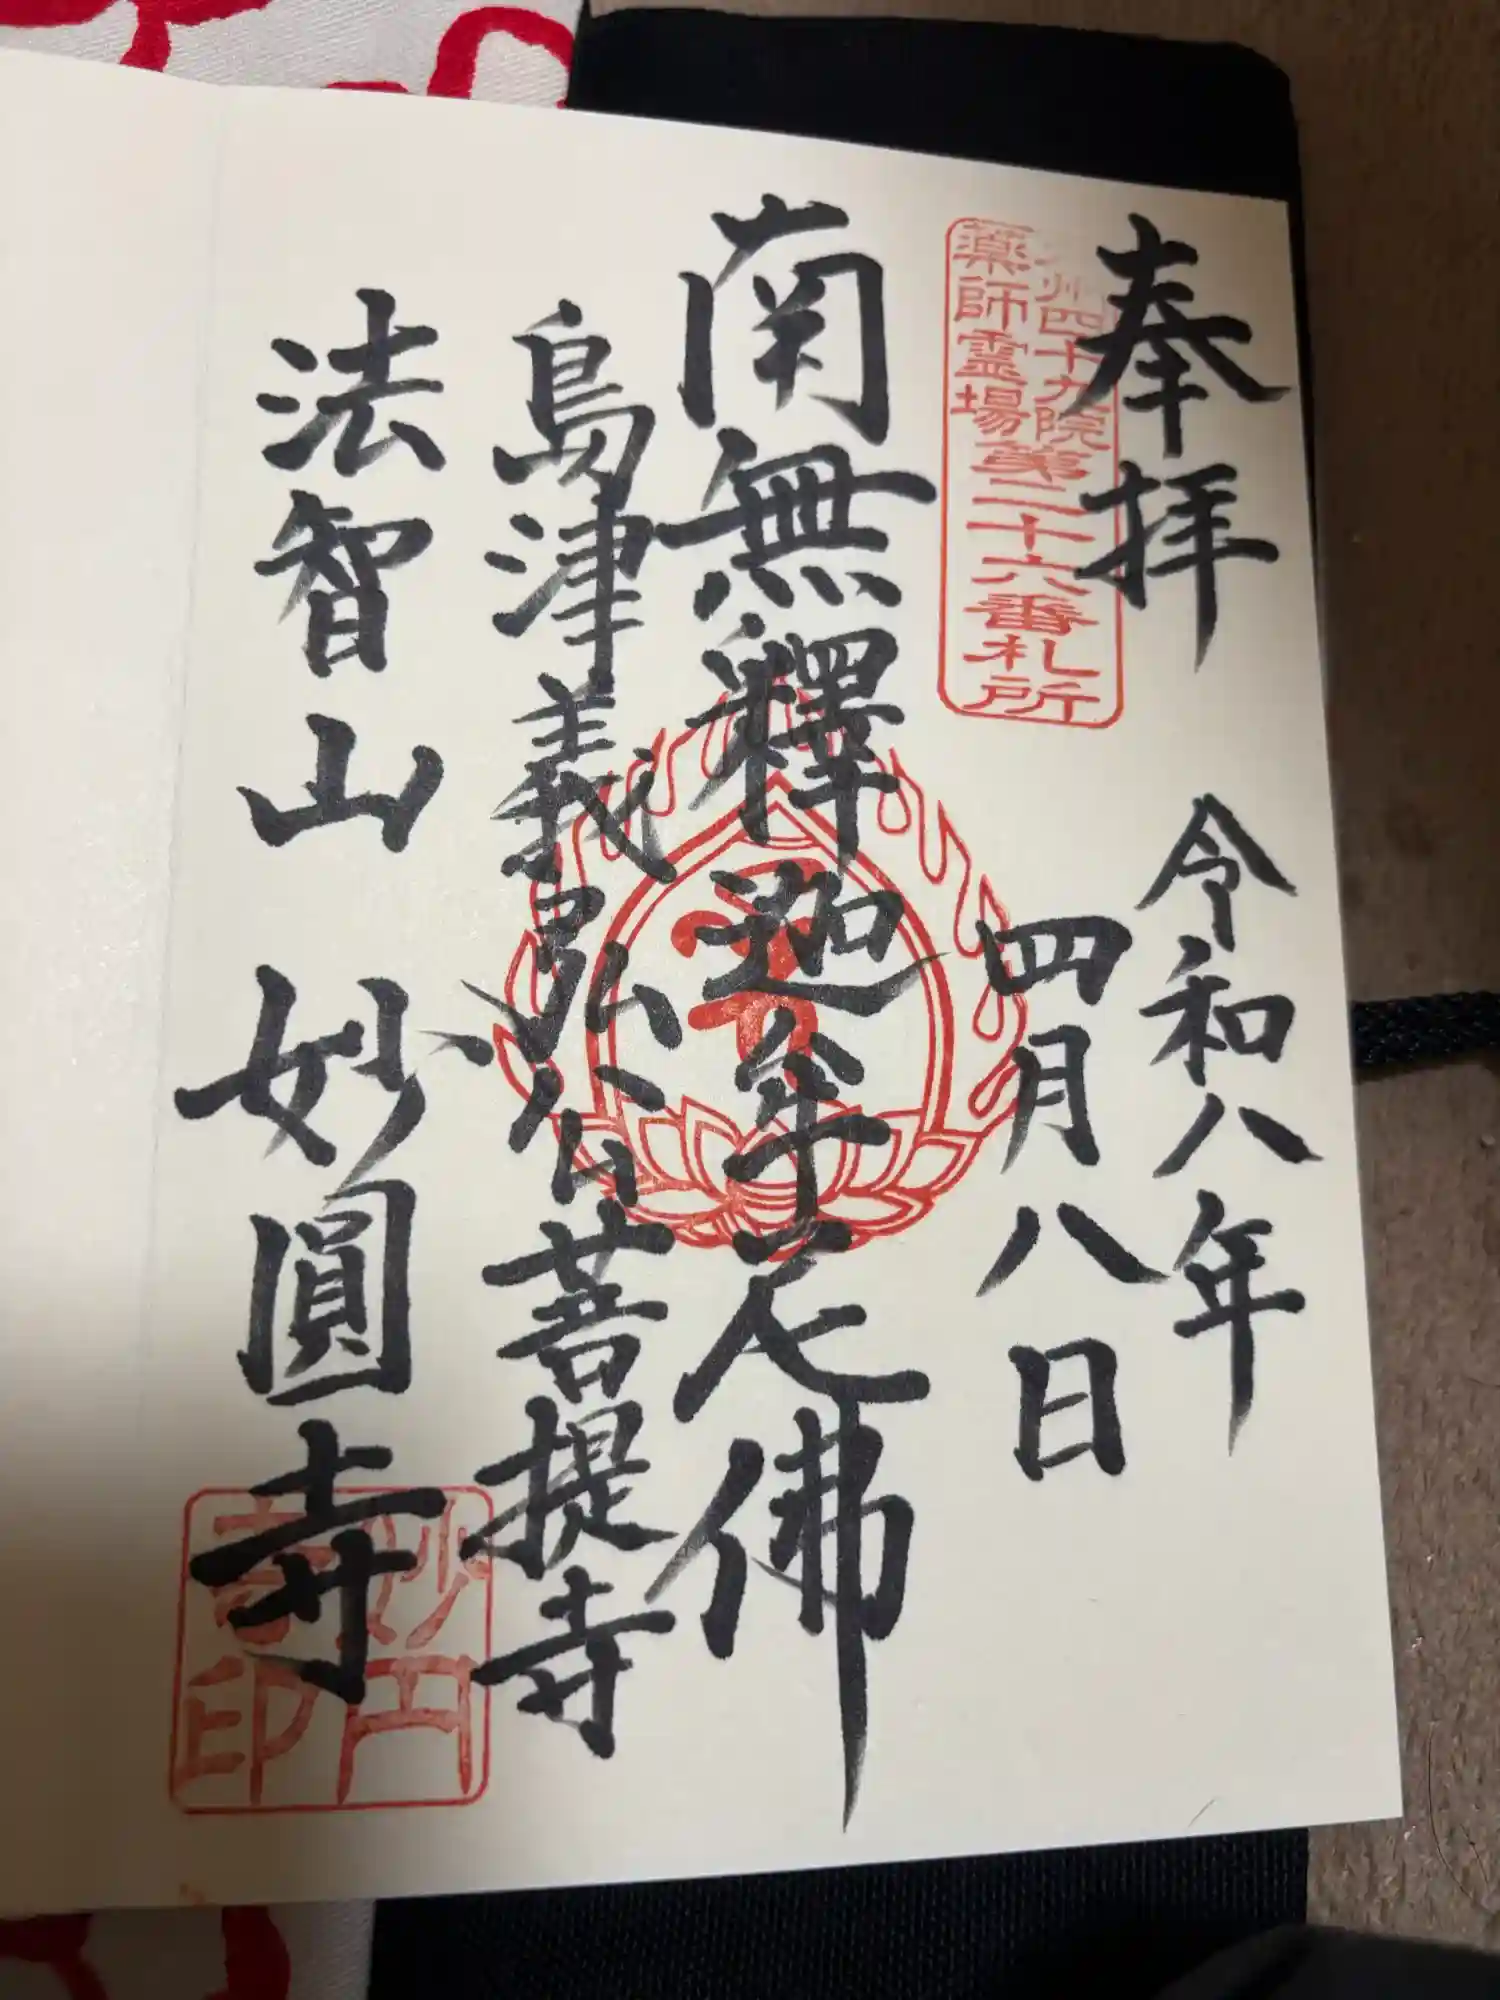 奉拝
令和八年
四月八日
州四十九院
薬師霊場第二十六番札所
南無釋迦牟尼佛
島津義弘公菩提寺
法智山 妙圓寺
妙円
寺印